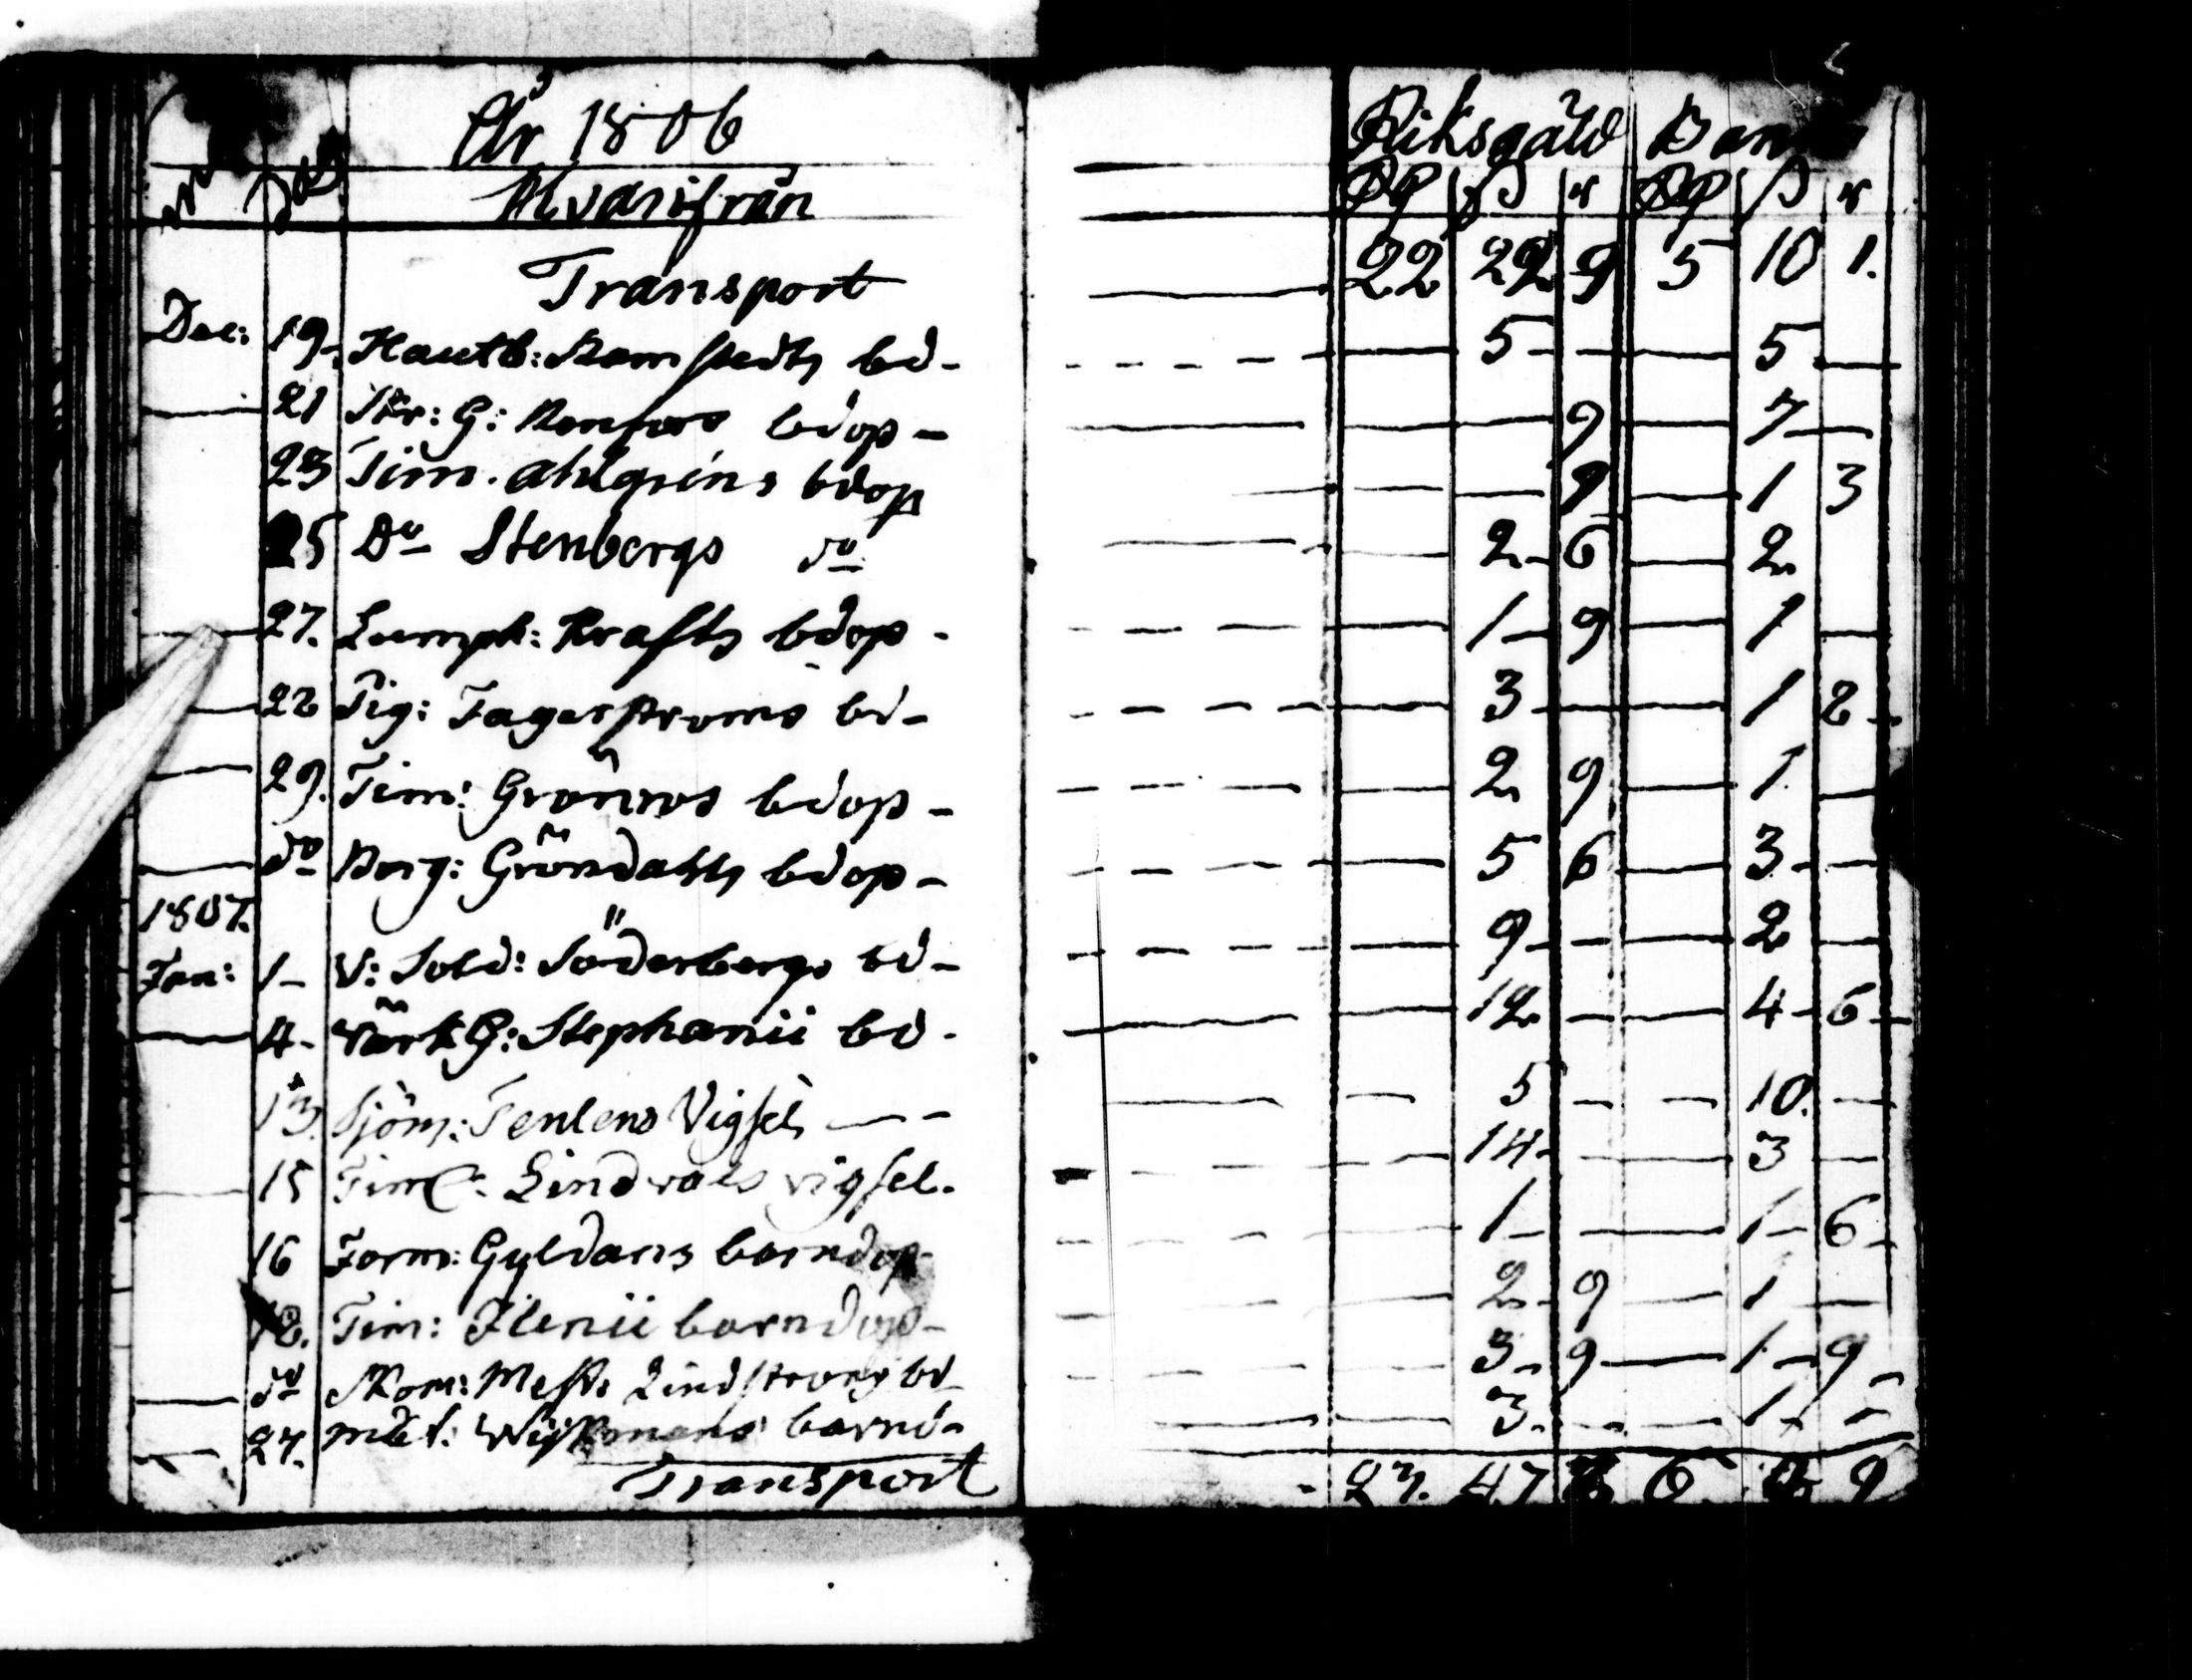 År 1806 Riksgäld
Dag Hvarifrån Rd ß r Rd ß r
Transport 22 22 9 5 10 1.
Dec: 19. Hautb: Ramstedts bd- 5 5
21 Skr: G: bdop- 9 7
23 Tim. Ahlgrens bdop 9 1 3
25 Do Stenbergs do 2 6 2
27. Krafts bdop- 1 9 1
22 Tig: Fagerstroms bd- 3 1 2
29. Tim: Grönros bdop- 2 9 1
do Borg: Gröndahls bdop- 5 6 3
1807.
Jan: 1- V: Sold: Söderbergs bd- 9 2
4- Värk G: Stephanii bd- 12 4 6
13. Sjöm: Tenlens Vigsel 5 10.
15 Tim: Lindvals vigsel. 14 3
16 Form: Gyldans barndop 1 1 6
18. Tim: barndop- 2 9 1
do Skom: Mest: Lindstroms bd 3 9 1 9
27. barnd- 3. 1
Transport 23. 47 6 9